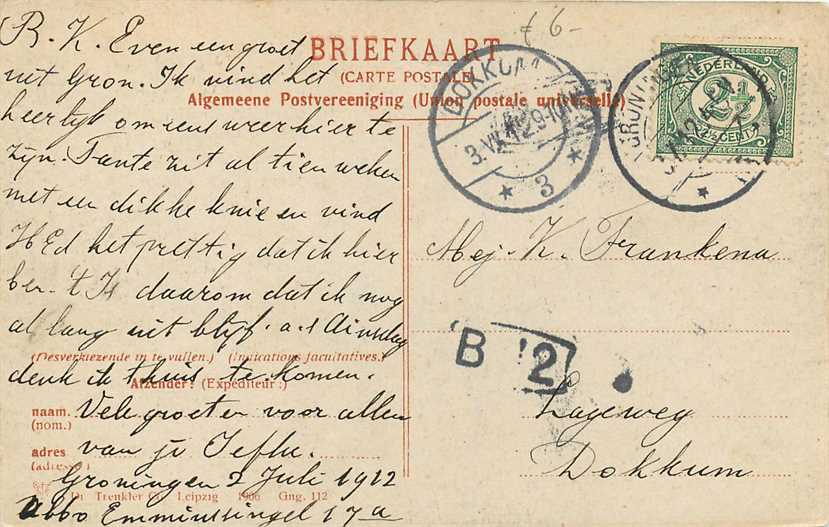 f 6-
B. K. Even een groet
BRIEFKAART
uit Gron. Ik vind het
(CARTE POSTALE)
Algemeene Postvereeniging (Union postale universelle)
heerlyk om eens weer hier te
zyn. Tante zit al tien weken
met een dikke knie en vind
HEd het prettig dat ik hier
ben. 't Is daarom dat ik nog
al lang uit blyf. a.s. Dinsdag
(Desverkiezende in te vullen.) (Indications facultatives.)
denk ik thuis te komen.
Afzender: (Expéditeur:)
naam. Vele groeten voor allen
(nom.)
adres van je
(adresse)
Groningen 2 Juli 1912
Dr. Trenkler Co. Leipzig 1906 Gng. 112
Ubbo Emmiussingel 17a
DOKKUM
3
GRONINGEN
NEDERLAND
2½
2½ CENT
Mej. K. Frankena
B 12
Lageweg
Dokkum